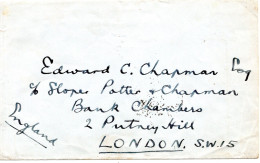 Edward C. Chapman Esq
c/o Sloper Potter & Chapman
Bank Chambers
2 Putney Hill
LONDON. S.W.15
England